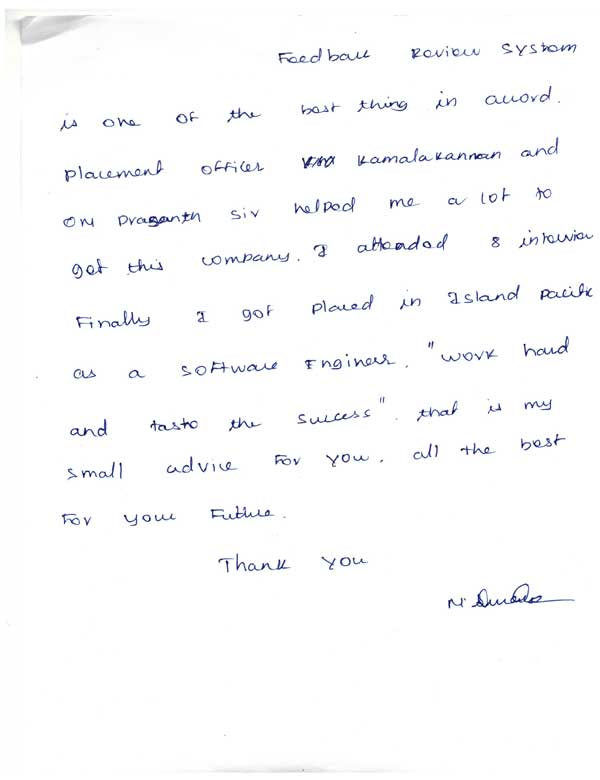 Feedback Review System
is one of the best thing in accord.
placement officer Kamalakannan and
OM Prasanth sir helped me a lot to
get this company. I attended 8 interview
Finally I got placed in Island pacific
as a software Engineer. "work hard
and taste the success". that is my
small advice for you. all the best
for your Future.
Thank you